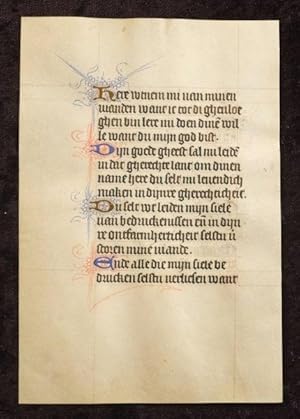 Here verem mi uan minen
uianden want ic tot di gheuloe
ghen bin lere mi doen dinē wil
le want du mijn god bist.
Dijn goede gheest sal mi leidē
in dat gherechte lant om dinen
name here du selt mi leuendich
maken in dijnre gherechticheit.
Du selt wt leiden mijn siele
uan bedruckenissen eñ in dijn
re ontfarmherticheit selstu
storen mine uiande.
Ende alle die mijn siele be
drucken selstu uerliesen want